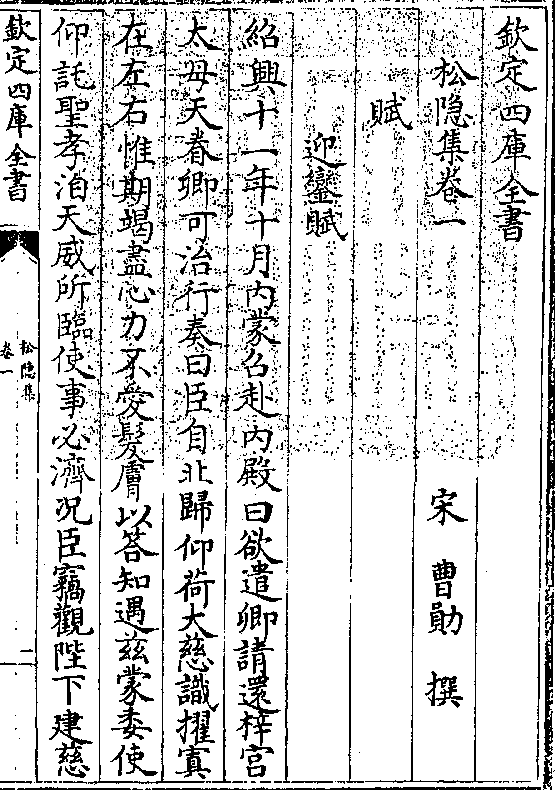 欽定四庫全書
松隐集卷一
宋 曹勛 撰
賦
迎鑾賦
紹興十一年十月內蒙召赴內殿曰欲遣卿請還梓宮
太母天眷卿可治行奏曰臣自北歸仰荷大慈識擢寘
在左右惟期竭盡心力不愛髮膚以答知遇兹蒙委使
仰託聖孝洎天威所臨使事必濟况臣竊觀陛下建慈
欽定四庫全書
松隐集
卷一
一